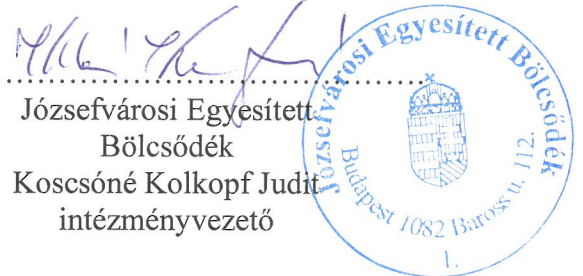 Józsefvárosi Egyesített
Bölcsődék
Koscsóné Kolkopf Judit
intézményvezető
Józsefvárosi Egyesített Bölcsődék
Budapest 1082 Baross u. 112.
1.